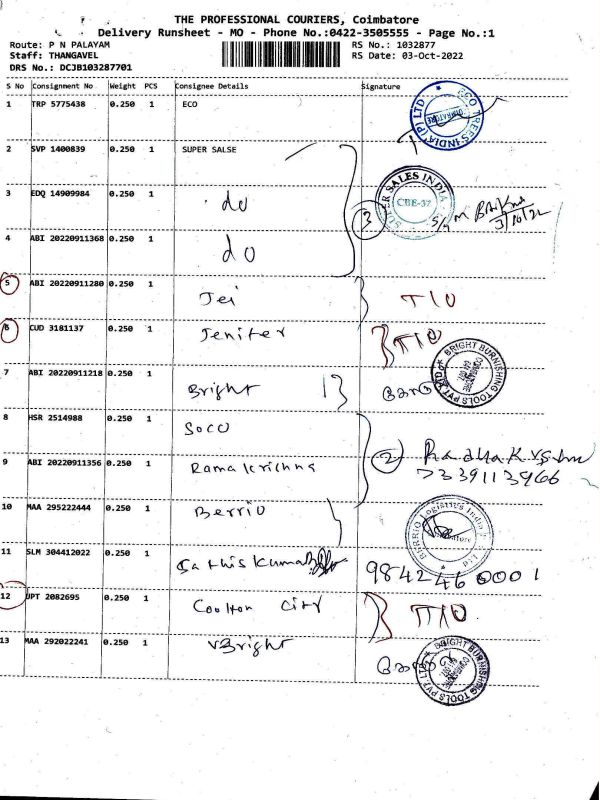 THE PROFESSIONAL COURIERS, Coimbatore
Delivery Runsheet - MO - Phone No.:0422-3505555 - Page No.:1
Route: P N PALAYAM RS No.: 1032877
Staff: THANGAVEL RS Date: 03-Oct-2022
DRS No.: DCJB103287701
S No Consignment No Weight PCS Consignee Details Signature
1 TRP 5775438 0.250 1 ECO
2 SVP 1400839 0.250 1 SUPER SALSE
3 EDQ 14909984 0.250 1 do
SUPER SALES INDIA CBE-37
3
3/10/22
4 ABI 20220911368 0.250 1 do
5 ABI 20220911280 0.250 1 Jei T10
6 CUD 3181137 0.250 1 Jeniter T10
7 ABI 20220911218 0.250 1 Bright 1
BRIGHT BURNISHING TOOLS PVT LTD
8 HSR 2514988 0.250 1 Soco
2 Radhakrishn
9 ABI 20220911356 0.250 1 Ramakrichna 7339113966
10 MAA 295222444 0.250 1 Berrio
BERRIO Logistics India P Ltd
11 SLM 304412022 0.250 1 Sathiskumar 9842460001
12 JPT 2082695 0.250 1 Coolton City T10
13 MAA 292022241 0.250 1 Bright
BRIGHT BURNISHING TOOLS PVT LTD